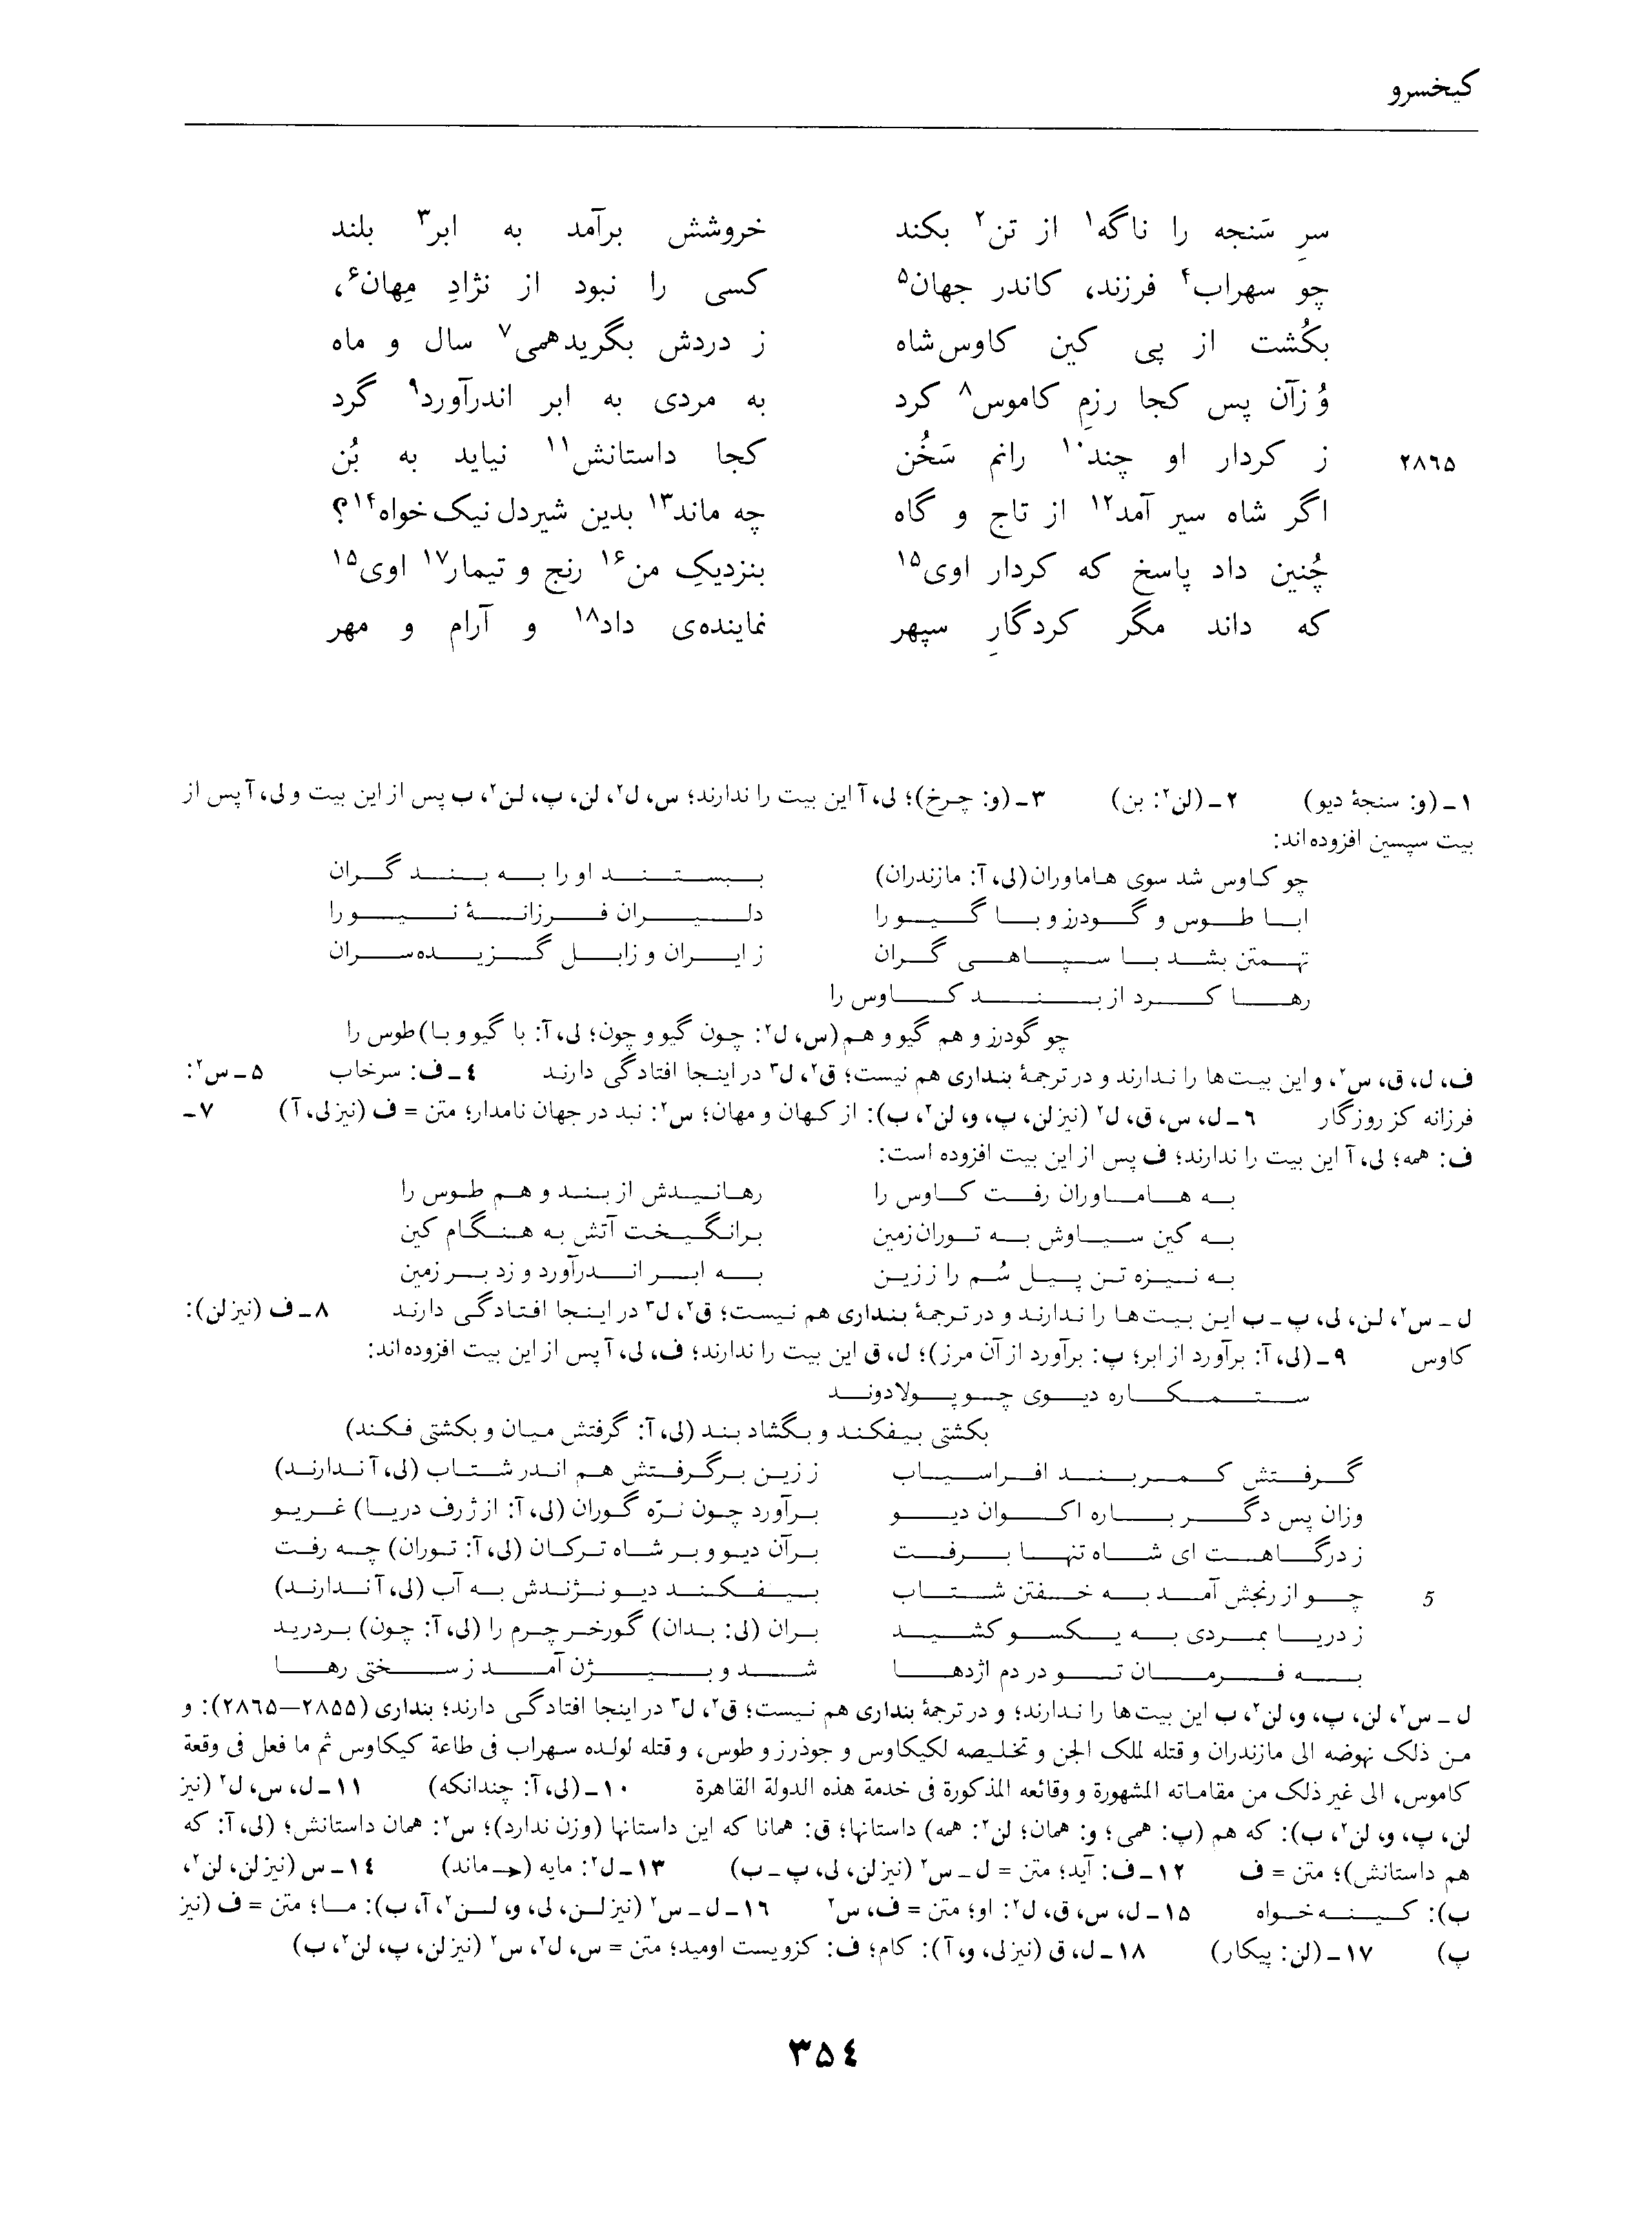 کیخسرو
سرِ سَنجه را ناگه۱ از تن۲ بکند خروشش برآمد به ابر۳ بلند
چو سهراب۴ فرزند، کاندر جهان۵ کسی را نبود از نژادِ مِهان۶،
بکُشت از پی کین کاوس‌شاه ز دردش بگرید همی۷ سال و ماه
وُ زآن پس کجا رزمِ کاموس۸ کرد به مردی به ابر اندرآورد۹ گرد
۲۸۶۵ ز کردار او چند۱۰ رانم سَخُن کجا داستانش۱۱ نیاید به بُن
اگر شاه سیر آمد۱۲ از تاج و گاه چه ماند۱۳ بدین شیردل نیک‌خواه۱۴؟
چُنین داد پاسخ که کردار اوی۱۵ بنزدیکِ من۱۶ رنج و تیمار۱۷ اوی۱۵
که داند مگر کردگارِ سپهر نماینده‌ی داد۱۸ و آرام و مهر
۱ـ (و: سنجهٔ دیو) ۲ـ (لن۲: بن) ۳ـ (و: چرخ)؛ لی، آ این بیت را ندارند؛ س، ل۲، لن، پ، لن۲، ب پس از این بیت و لی، آ پس از
بیت سپسین افزوده‌اند:
چو کاوس شد سوی هاماوران (لی، آ: مازندران) ببستند او را به بند گران
ابا طوس و گودرز و با گیو را دلیران فرزانهٔ نیو را
تهمتن بشد با سپاهی گران ز ایران و زابل گزیده‌سران
رها کرد از بند کاوس را
چو گودرز و هم گیو و هم (س، ل۲: چون گیو و چون؛ لی، آ: با گیو و با) طوس را
ف، ل، ق، س۲، و این بیت‌ها را ندارند و در ترجمهٔ بنداری هم نیست؛ ق۲، ل۳ در اینجا افتادگی دارند ۴ـ ف: سرخاب ۵ـ س۲:
فرزانه کز روزگار ۶ـ ل، س، ق، ل۲ (نیز لن، پ، و، لن۲، ب): از کهان و مهان؛ س۲: نبد در جهان نامدار؛ متن = ف (نیز لی، آ) ۷ـ
ف: همه؛ لی، آ این بیت را ندارند؛ ف پس از این بیت افزوده است:
به هاماوران رفت کاوس را رهانیدش از بند و هم طوس را
به کین سیاوش به توران‌زمین برانگیخت آتش به هنگام کین
به نیزه تن پیل سُم را ز زین به ابر اندرآورد و زد بر زمین
ل ـ س۲، لن، لی، پ ـ ب این بیت‌ها را ندارند و در ترجمهٔ بنداری هم نیست؛ ق۲، ل۳ در اینجا افتادگی دارند ۸ـ ف (نیز لن):
کاوس ۹ـ (لی، آ: برآورد از ابر؛ پ: برآورد از آن مرز)؛ ل، ق این بیت را ندارند؛ ف، لی، آ پس از این بیت افزوده‌اند:
ستمکاره دیوی چو پولادوند
بکشتی بیفکند و بگشاد بند (لی، آ: گرفتش میان و بکشتی فکند)
گرفتش کمربند افراسیاب ز زین برگرفتش هم اندر شتاب (لی، آ ندارند)
وزان پس دگر باره اکوان دیو برآورد چون نرّه گوران (لی، آ: از ژرف دریا) غریو
ز درگاهت ای شاه تنها برفت برآن دیو و بر شاه ترکان (لی، آ: توران) چه رفت
5 چو از رنجش آمد به خفتن شتاب بیفکند دیو نژندش به آب (لی، آ ندارند)
ز دریا بمردی به یکسو کشید بران (لی: بدان) گورخر چرم را (لی، آ: چون) بردرید
به فرمان تو در دم اژدها شد و بیژن آمد ز سختی رها
ل ـ س۲، لن، پ، و، لن۲، ب این بیت‌ها را ندارند؛ و در ترجمهٔ بنداری هم نیست؛ ق۲، ل۳ در اینجا افتادگی دارند؛ بنداری (۲۸۵۵—۲۸۶۵): و
من ذلک نهوضه الی مازندران و قتله لملک الجن و تخلیصه لکیکاوس و جوذرز و طوس، و قتله لولده سهراب فی طاعة کیکاوس ثم ما فعل فی وقعة
کاموس، الی غیر ذلک من مقاماته المشهورة و وقائعه المذکورة فی خدمة هذه الدولة القاهرة ۱۰ـ (لی، آ: چندانکه) ۱۱ـ ل، س، ل۲ (نیز
لن، پ، و، لن۲، ب): که هم (پ: همی؛ و: همان؛ لن۲: همه) داستانها؛ ق: همانا که این داستانها (وزن ندارد)؛ س۲: همان داستانش؛ (لی، آ: که
هم داستانش)؛ متن = ف ۱۲ـ ف: آید؛ متن = ل ـ س۲ (نیز لن، لی، پ ـ ب) ۱۳ـ ل۲: مایه (← ماند) ۱۴ـ س (نیز لن، لن۲،
ب): کینه‌خواه ۱۵ـ ل، س، ق، ل۲: او؛ متن = ف، س۲ ۱۶ـ ل ـ س۲ (نیز لن، لی، و، لن۲، آ، ب): ما؛ متن = ف (نیز
پ) ۱۷ـ (لن: پیکار) ۱۸ـ ل، ق (نیز لی، و، آ): کام؛ ف: کزویست اومید؛ متن = س، ل۲، س۲ (نیز لن، پ، لن۲، ب)
۳۵۴